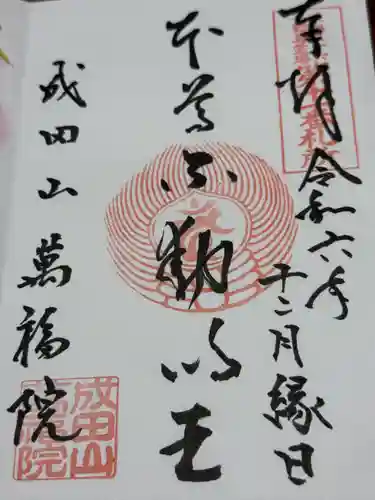 奉拝 令和六年
十二月縁日
本尊不動明王
成田山萬福院
成田山
萬福院